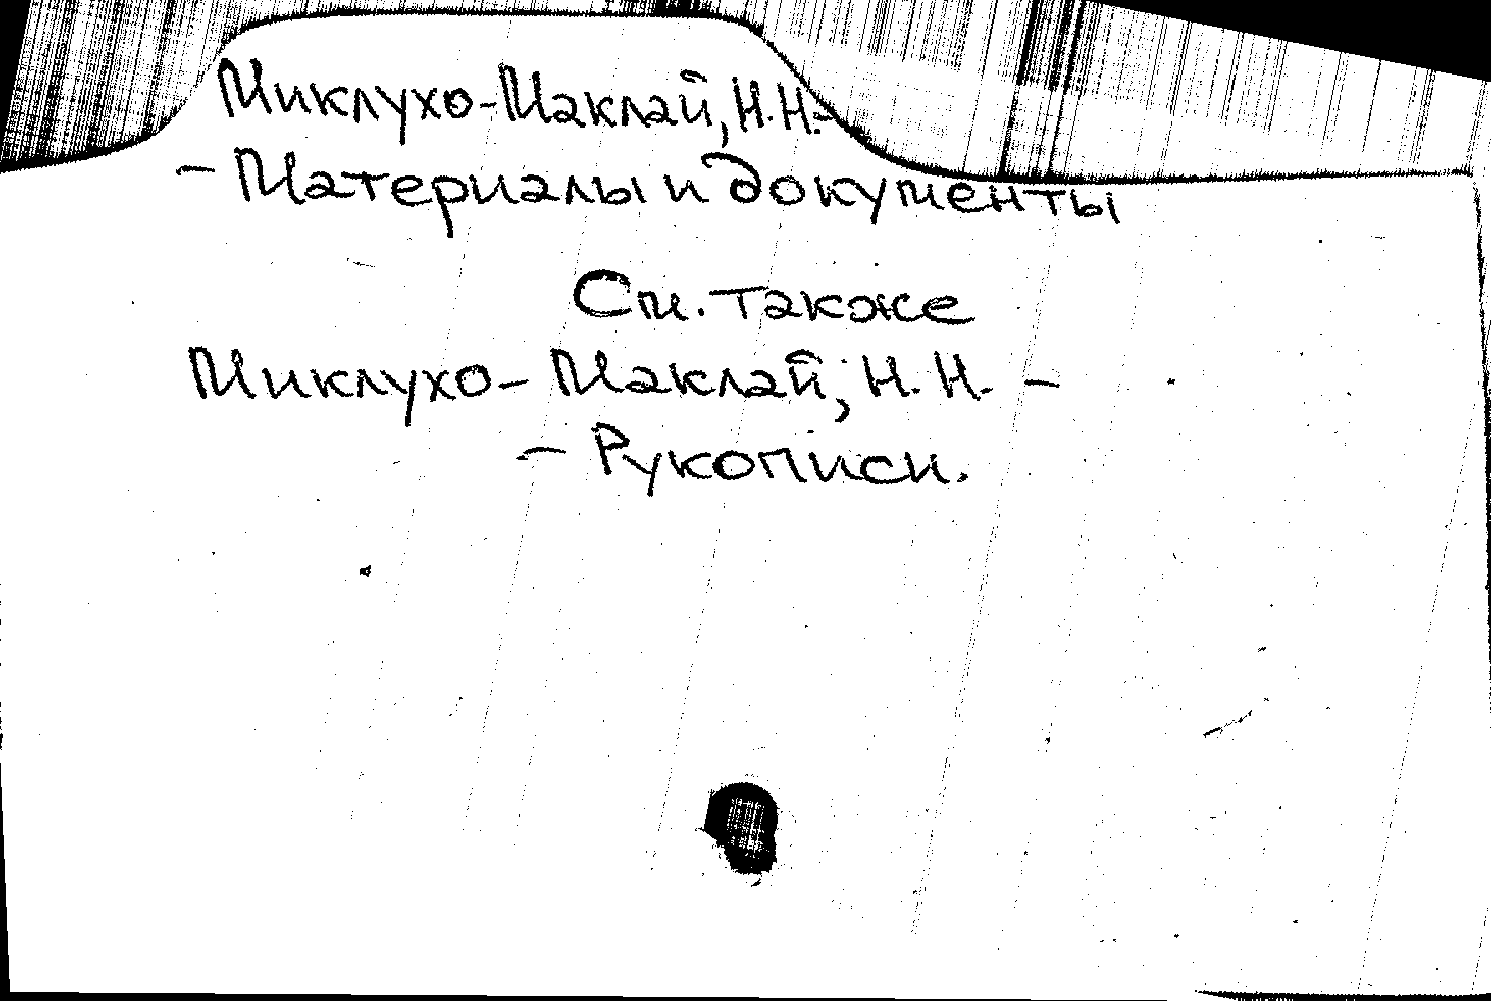 Миклухо-Маклай, Н.Н.-
- Материалы и документы
См. также
Миклухо- Маклай, Н. Н. -
- Рукописи.